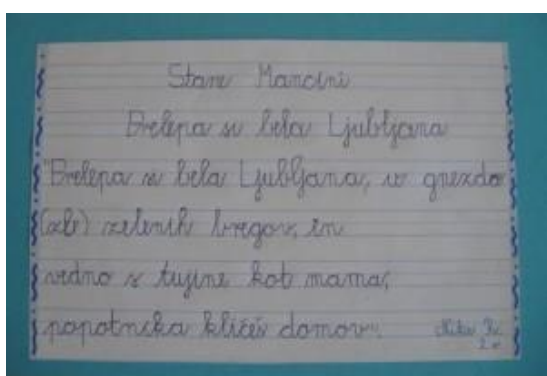 Stane Mancini
Prelepa si bela Ljubljana
"Prelepa si bela Ljubljana, si gnezdo
(zle) zelenih bregov, in
vedno s tujine kot mama,
popotnika kličeš domov".
2.